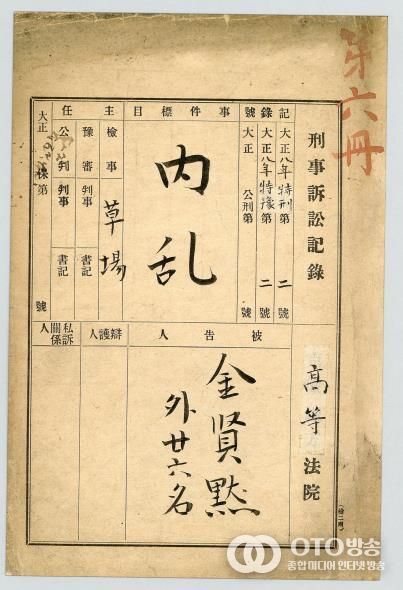 第六冊
刑事訴訟記錄
高等法院
記錄號
大正八年特刑第二號
大正八年特豫第二號
大正 公刑第 號
事件標目
内乱
主任
檢事 草場
豫審判事 書記
公判判事 書記
大正 保第 號
被告人
金賢黙
外廿六名
辯護人
私訴關係人
OTO방송
종합미디어 인터넷방송